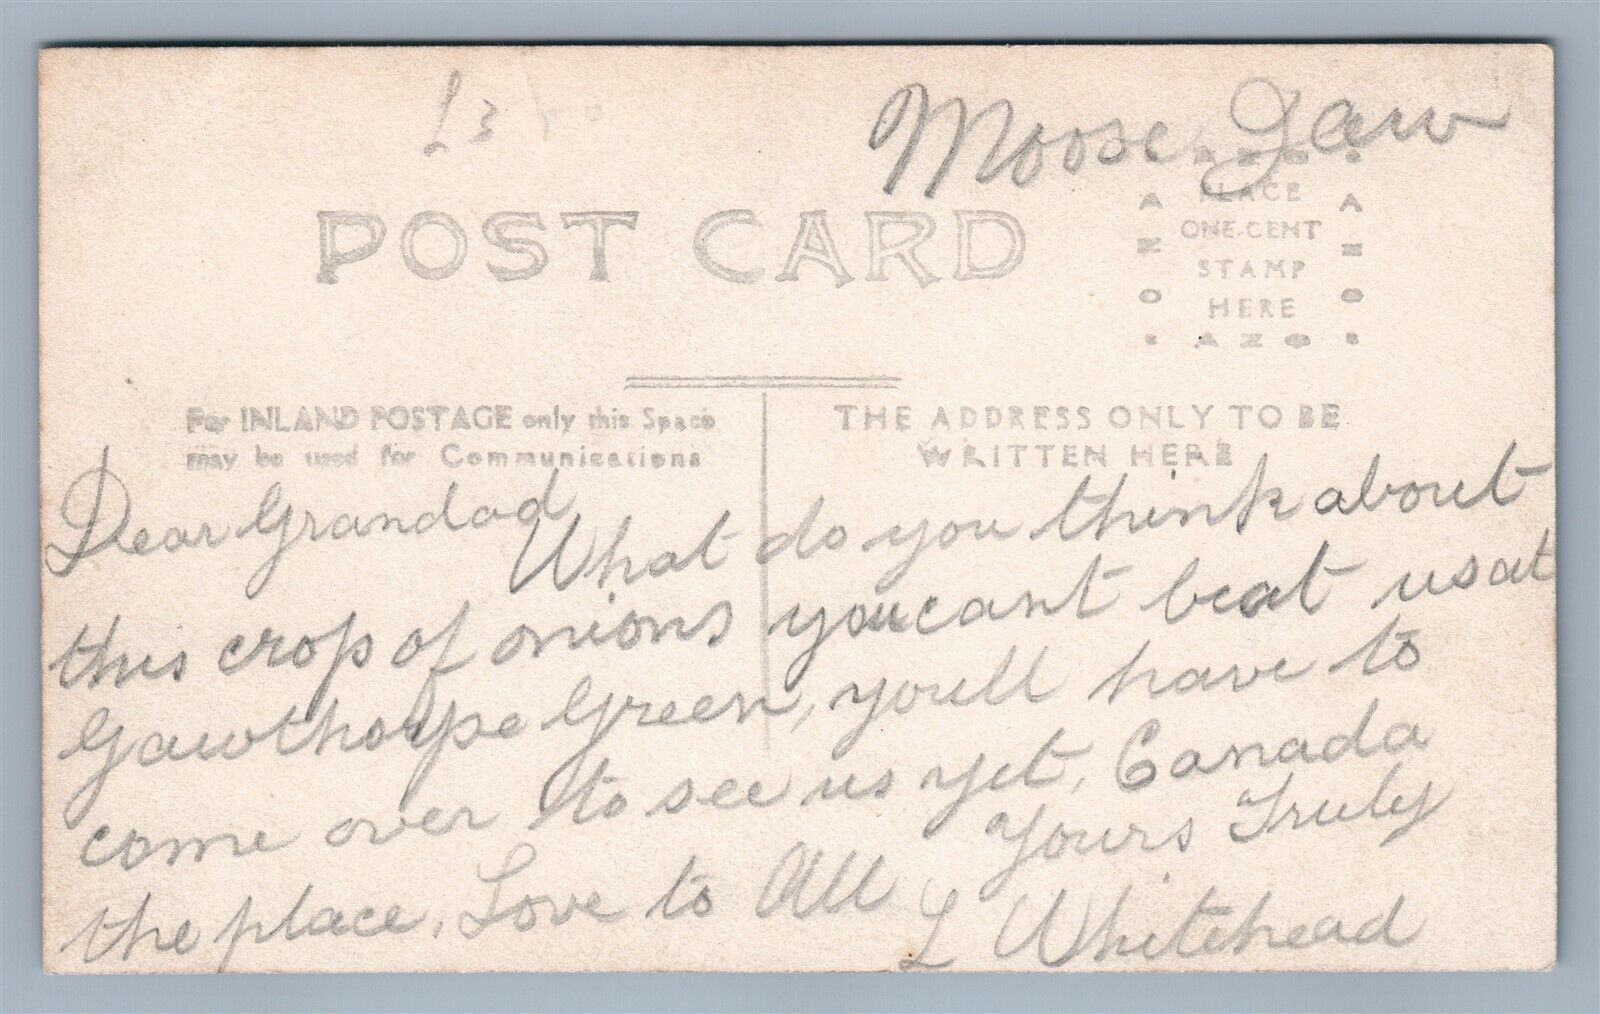 L3
Moose Jaw
POST CARD
AZO
PLACE
ONE CENT
STAMP
HERE
AZO
AZO
AZO
For INLAND POSTAGE only this Space
may be used for Communications
THE ADDRESS ONLY TO BE
WRITTEN HERE
Dear Grandad
What do you think about
this crop of onions you cant beat us at
Gawthorpe Green, youll have to
come over to see us yet, Canada
the place. Love to All
Yours Truly
L Whitehead